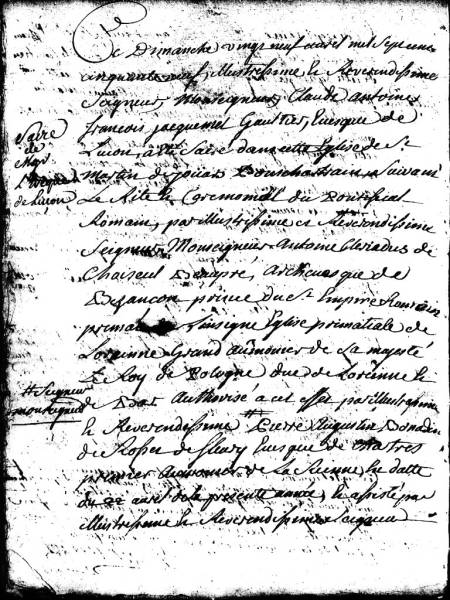 Ce Dimanche vingt neuf avril mil Sept cens
cinquante neuf, illustrissime le Reverendissime
Seigneur, Monseigneur, Claude Antoine
francois jacquemet Gaultier, Evesque de
Lucon, a été Sacré dans cette Eglise de St
Martin de jouars Suivant
Le Rite le Ceremonial du Pontifical
Romain, par illustrissime et Reverendissime
Seigneur Monseigneur Antoine Cleriadus de
Choiseul Beaupré, Archevesque de
Besancon prince du St Empire Romain
primat L'insigne Eglise primatiale de
Lorainne Grand aumonier de La majesté
Le Roy de Pologne duc de Lorainne le
de Bar authorisé a cet effet par illustrissime
le Reverendissime # Pierre Augustin Bernardin
de Rosset de fleury Evesque de Chatres
premier aumonier de La Reinne, En datte
du 22 avril de la presente année, le assisté par
illustrissime le Reverendissime Seigneur
Sacre
de
Mgr
L'Evêque
de Lucon
# Seigneur
monseigneur